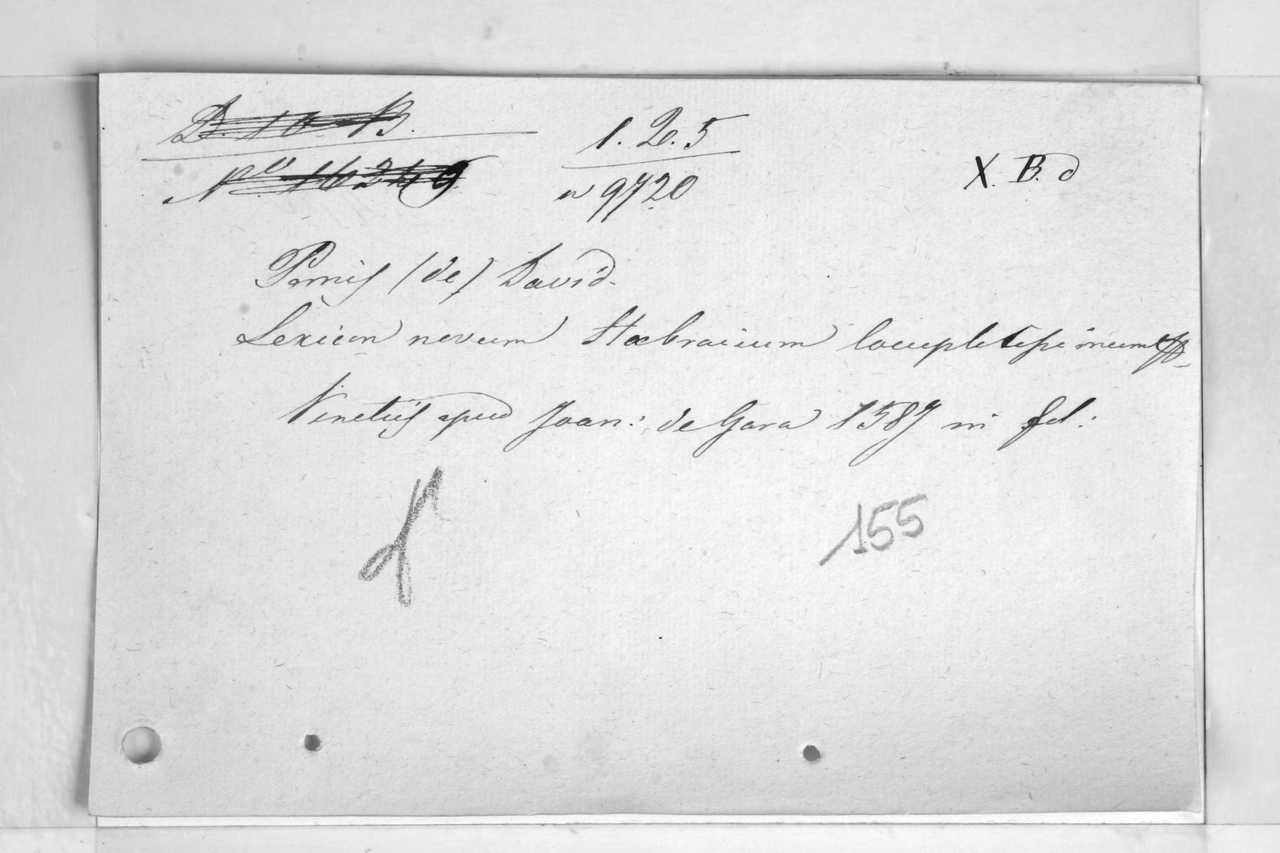 D. 10 B. 1.2.5 X. B. d
No 16249 a 9720
Pomis (de) David.
Lexicon novum Haebraicum locupletissimum
Venetiis apud Joan: de Gara 1587 in fol:
155